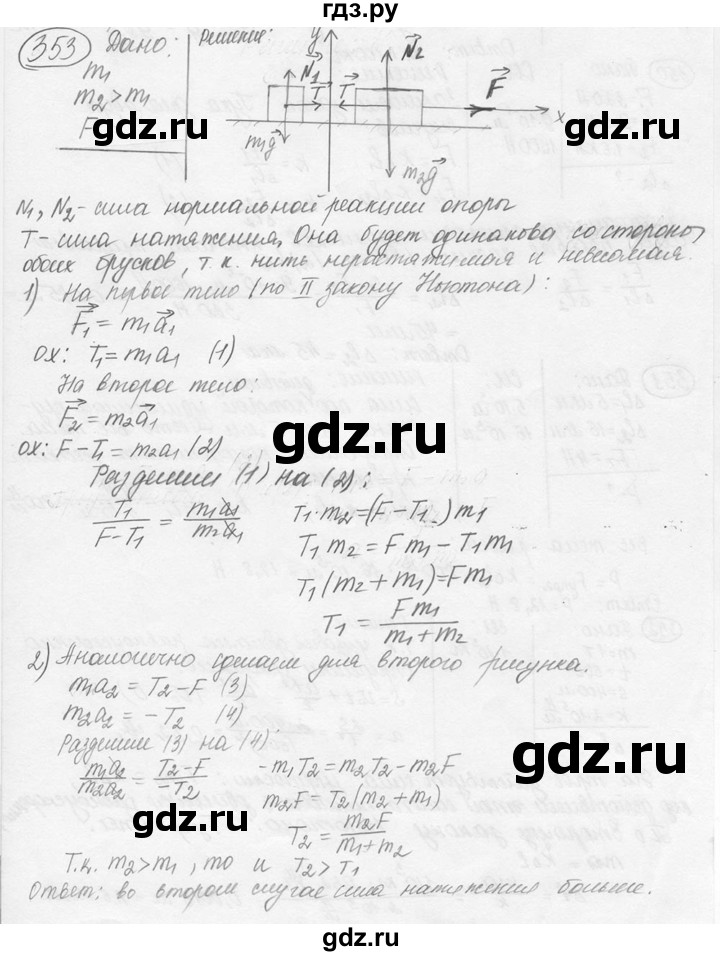 гдз.ру
353 Дано: Решение:
m₁
m₂>m₁
F
y
N₁
T
T
N₂
F
x
m₁g
m₂g
gdz.ru
gdz.ru
N₁, N₂ - сила нормальной реакции опоры
T - сила натяжения. Она будет одинакова со стороны
обоих брусков, т.к. нить нерастяжимая и невесомая.
1) На первое тело (по II закону Ньютона):
F₁ = m₁a₁
ох: T₁ = m₁a₁ (1)
gdz.ru
На второе тело:
F₂ = m₂a₁
ох: F - T₁ = m₂a₁ (2)
gdz.ru
Разделим (1) на (2):
T₁/(F - T₁) = m₁a₁/m₂a₁ T₁·m₂ = (F - T₁)m₁
T₁m₂ = Fm₁ - T₁m₁
T₁(m₂ + m₁) = Fm₁
T₁ = Fm₁/(m₁ + m₂)
gdz.ru
2) Аналогично сделаем для второго рисунка.
m₁a₂ = T₂ - F (3)
m₂a₂ = -T₂ (4)
gdz.ru
Разделим (3) на (4):
m₁a₂/m₂a₂ = (T₂ - F)/-T₂ -m₁T₂ = m₂T₂ - m₂F
m₂F = T₂(m₂ + m₁)
T₂ = m₂F/(m₁ + m₂)
gdz.ru
Т.к. m₂>m₁, то и T₂>T₁
Ответ: во втором случае сила натяжения больше.
gdz.ru
гдз.ру